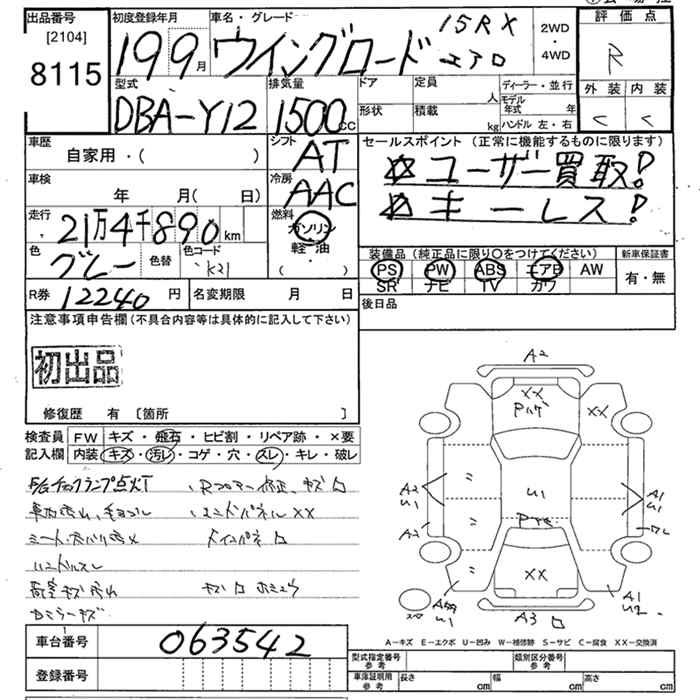 出品番号 初度登録年月 車名・グレード 15RX 2WD 評価点
[2104] 19 9月 ウイングロード エアロ ・4WD R
8115 型式 排気量 ドア 定員 人 ディーラー・並行 外装 内装
DBA-Y12 1500cc 形状 積載 kg モデル年式 年 ハンドル 左・右 < <
車歴 シフト セールスポイント (正常に機能するものに限ります)
自家用・( ) AT ☆ユーザー買取!
車検 冷房 ☆キーレス!
年 月( 日) AAC
走行 21万4千890km 燃料 ガソリン
色 グレー 色替 色コード K21 軽油 装備品 (純正品に限り○をつけてください) 新車保証書
・( ) PS PW ABS エアB AW 有・無
R券 12240円 名変期限 月 日 SR ナビ TV カワ
注意事項申告欄(不具合内容等は具体的に記入して下さい) 後日品
初出品
修復歴 有 〔箇所 〕
検査員 FW キズ・飛石・ヒビ割・リペア跡・×要
記入欄 内装 キズ・汚レ・コゲ・穴・スレ・キレ・破レ
ハンドルスレ
A2
XX
XX
A2
U1
U1
A1
U1
A2
XX
A1
U2
U1
A3
A-キズ E-エクボ U-凹み W-補修跡 S-サビ C-腐食 XX-交換済
車台番号 063542 型式指定番号 参考 類別区分番号 参考
登録番号 車庫証明用 参考 長さ cm 幅 cm 高さ cm